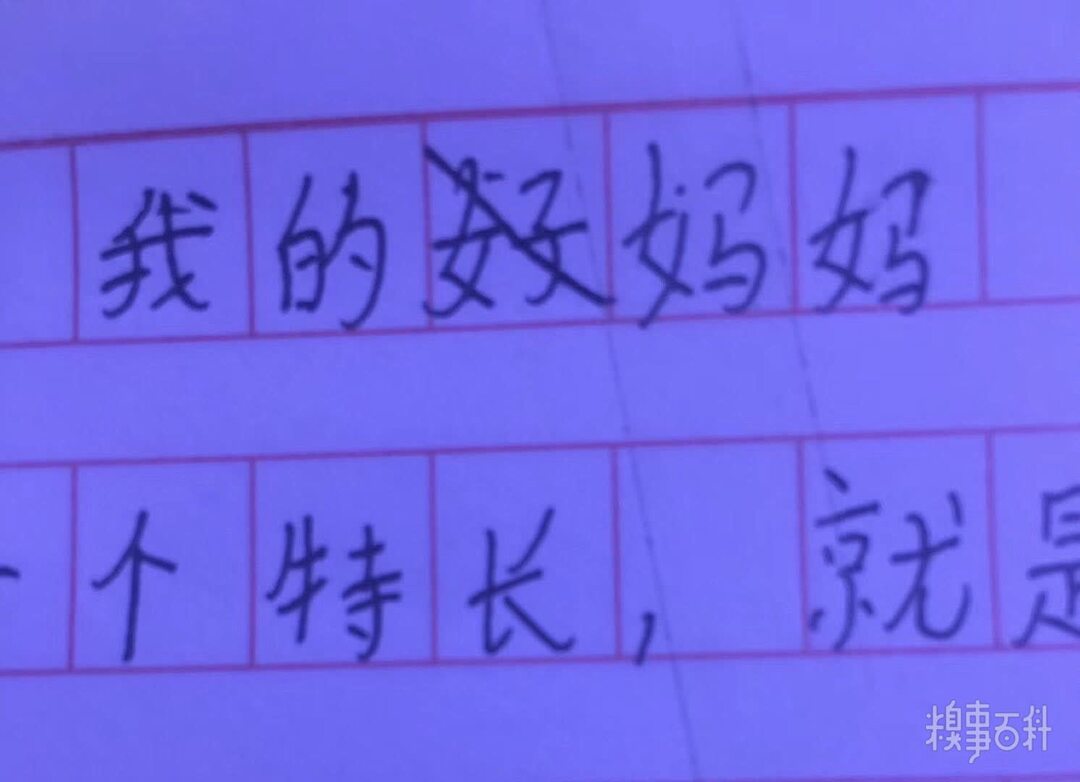 我的好妈妈
一个特长，就是
糗事百科